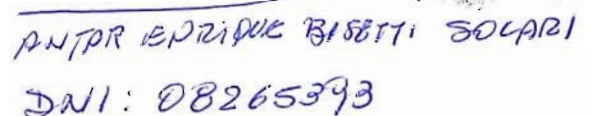 ANTOR ENRIQUE BISETTI SOLARI
DNI: 08265393